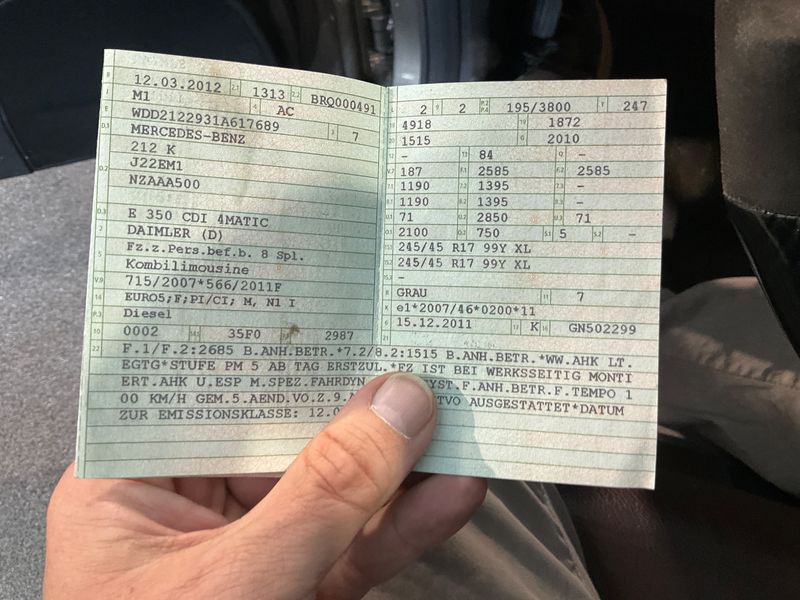 12.03.2012 1313 BRQ000491
M1 AC
WDD2122931A617689 7
MERCEDES-BENZ
212 K
J22EM1
NZAAA500
E 350 CDI 4MATIC
DAIMLER (D)
Fz.z.Pers.bef.b. 8 Spl.
Kombilimousine
715/2007*566/2011F
EURO5;F;PI/CI; M, N1 I
Diesel
0002 35F0 2987
2 2 195/3800 247
4918 1872
1515 2010
- 84 -
187 2585 2585
1190 1395 -
1190 1395 -
71 2850 71
2100 750 5 -
245/45 R17 99Y XL
245/45 R17 99Y XL
-
GRAU 7
e1*2007/46*0200*11
15.12.2011 K GN502299
F.1/F.2:2685 B.ANH.BETR.*7.2/8.2:1515 B.ANH.BETR.*WW.AHK LT.
EGTG*STUFE PM 5 AB TAG ERSTZUL.*FZ IST BEI WERKSSEITIG MONTI
ERT.AHK U.ESP M.SPEZ.FAHRDYN YST.F.ANH.BETR.F.TEMPO 1
00 KM/H GEM.5.AEND.VO.Z.9. TVO AUSGESTATTET*DATUM
ZUR EMISSIONSKLASSE: 12.0